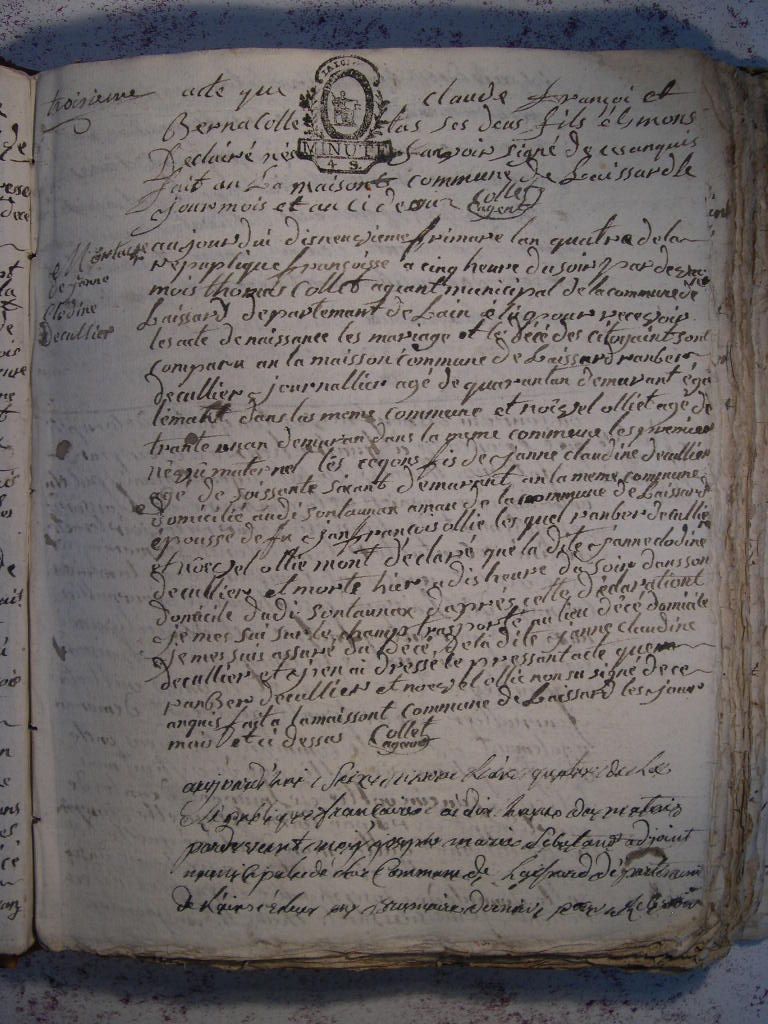 troisieme acte que claude François et
Berna Colle tas ses deus fils és mons
MINUTE
4 S.
Declairé nés savoir signé de ce anquis
fait an La maison commune de Laissard le
jour mois et an ci desur Collet
agent
Mortaire
de janne
Clodine
decullier
aujourdui disneuxieme frimare lan quatre de la
repuplique françoisse a cinq heure du soir par de
mois thomas Collet ageant municipal de la commune de
Laissard departement de Lain élu pour recevoir
les acte de naissance les mariage et le décé des citoyaint sont
comparu an la maisson commune de Laissard ranber
decullier journallier agé de quarantan demurant éga
lemant dans las meme commune et noégel olliet agé de
trante un an demuran dans la meme commune les premier
maternel les segons fis de janne claudine decullier
agé de soissante sixant demurant an la meme commune
domicilié audi sontaunax aman de la commune de Laissard
épousse de fu jan françois ollie les quel ranber decullie
et noégel ollie mont déclaré que la dite janne clodine
decullier et morte hier a dis heure du soir dans son
domicile dudi sontaunax daprés cette déclarationt
je me sui sur le champ trasporté au lieu décé domicile
je me suis assuré du décé de la dite janne claudine
decullier et jen ai dressé le pressant acte que
ranber decullier et noegel ollie non su signé de ce
anquis fait a la maissont commune de Laissard les jour
mois et ci dessas Collet
ageant
aujourdhui seize nivose lan quatre de la
Republique francaise a dix heures du matin
pardevant moy joseph marie adjoint
municipal de la Commune de Laissard département
de Lain élu en brumaire dernier pour recevoir